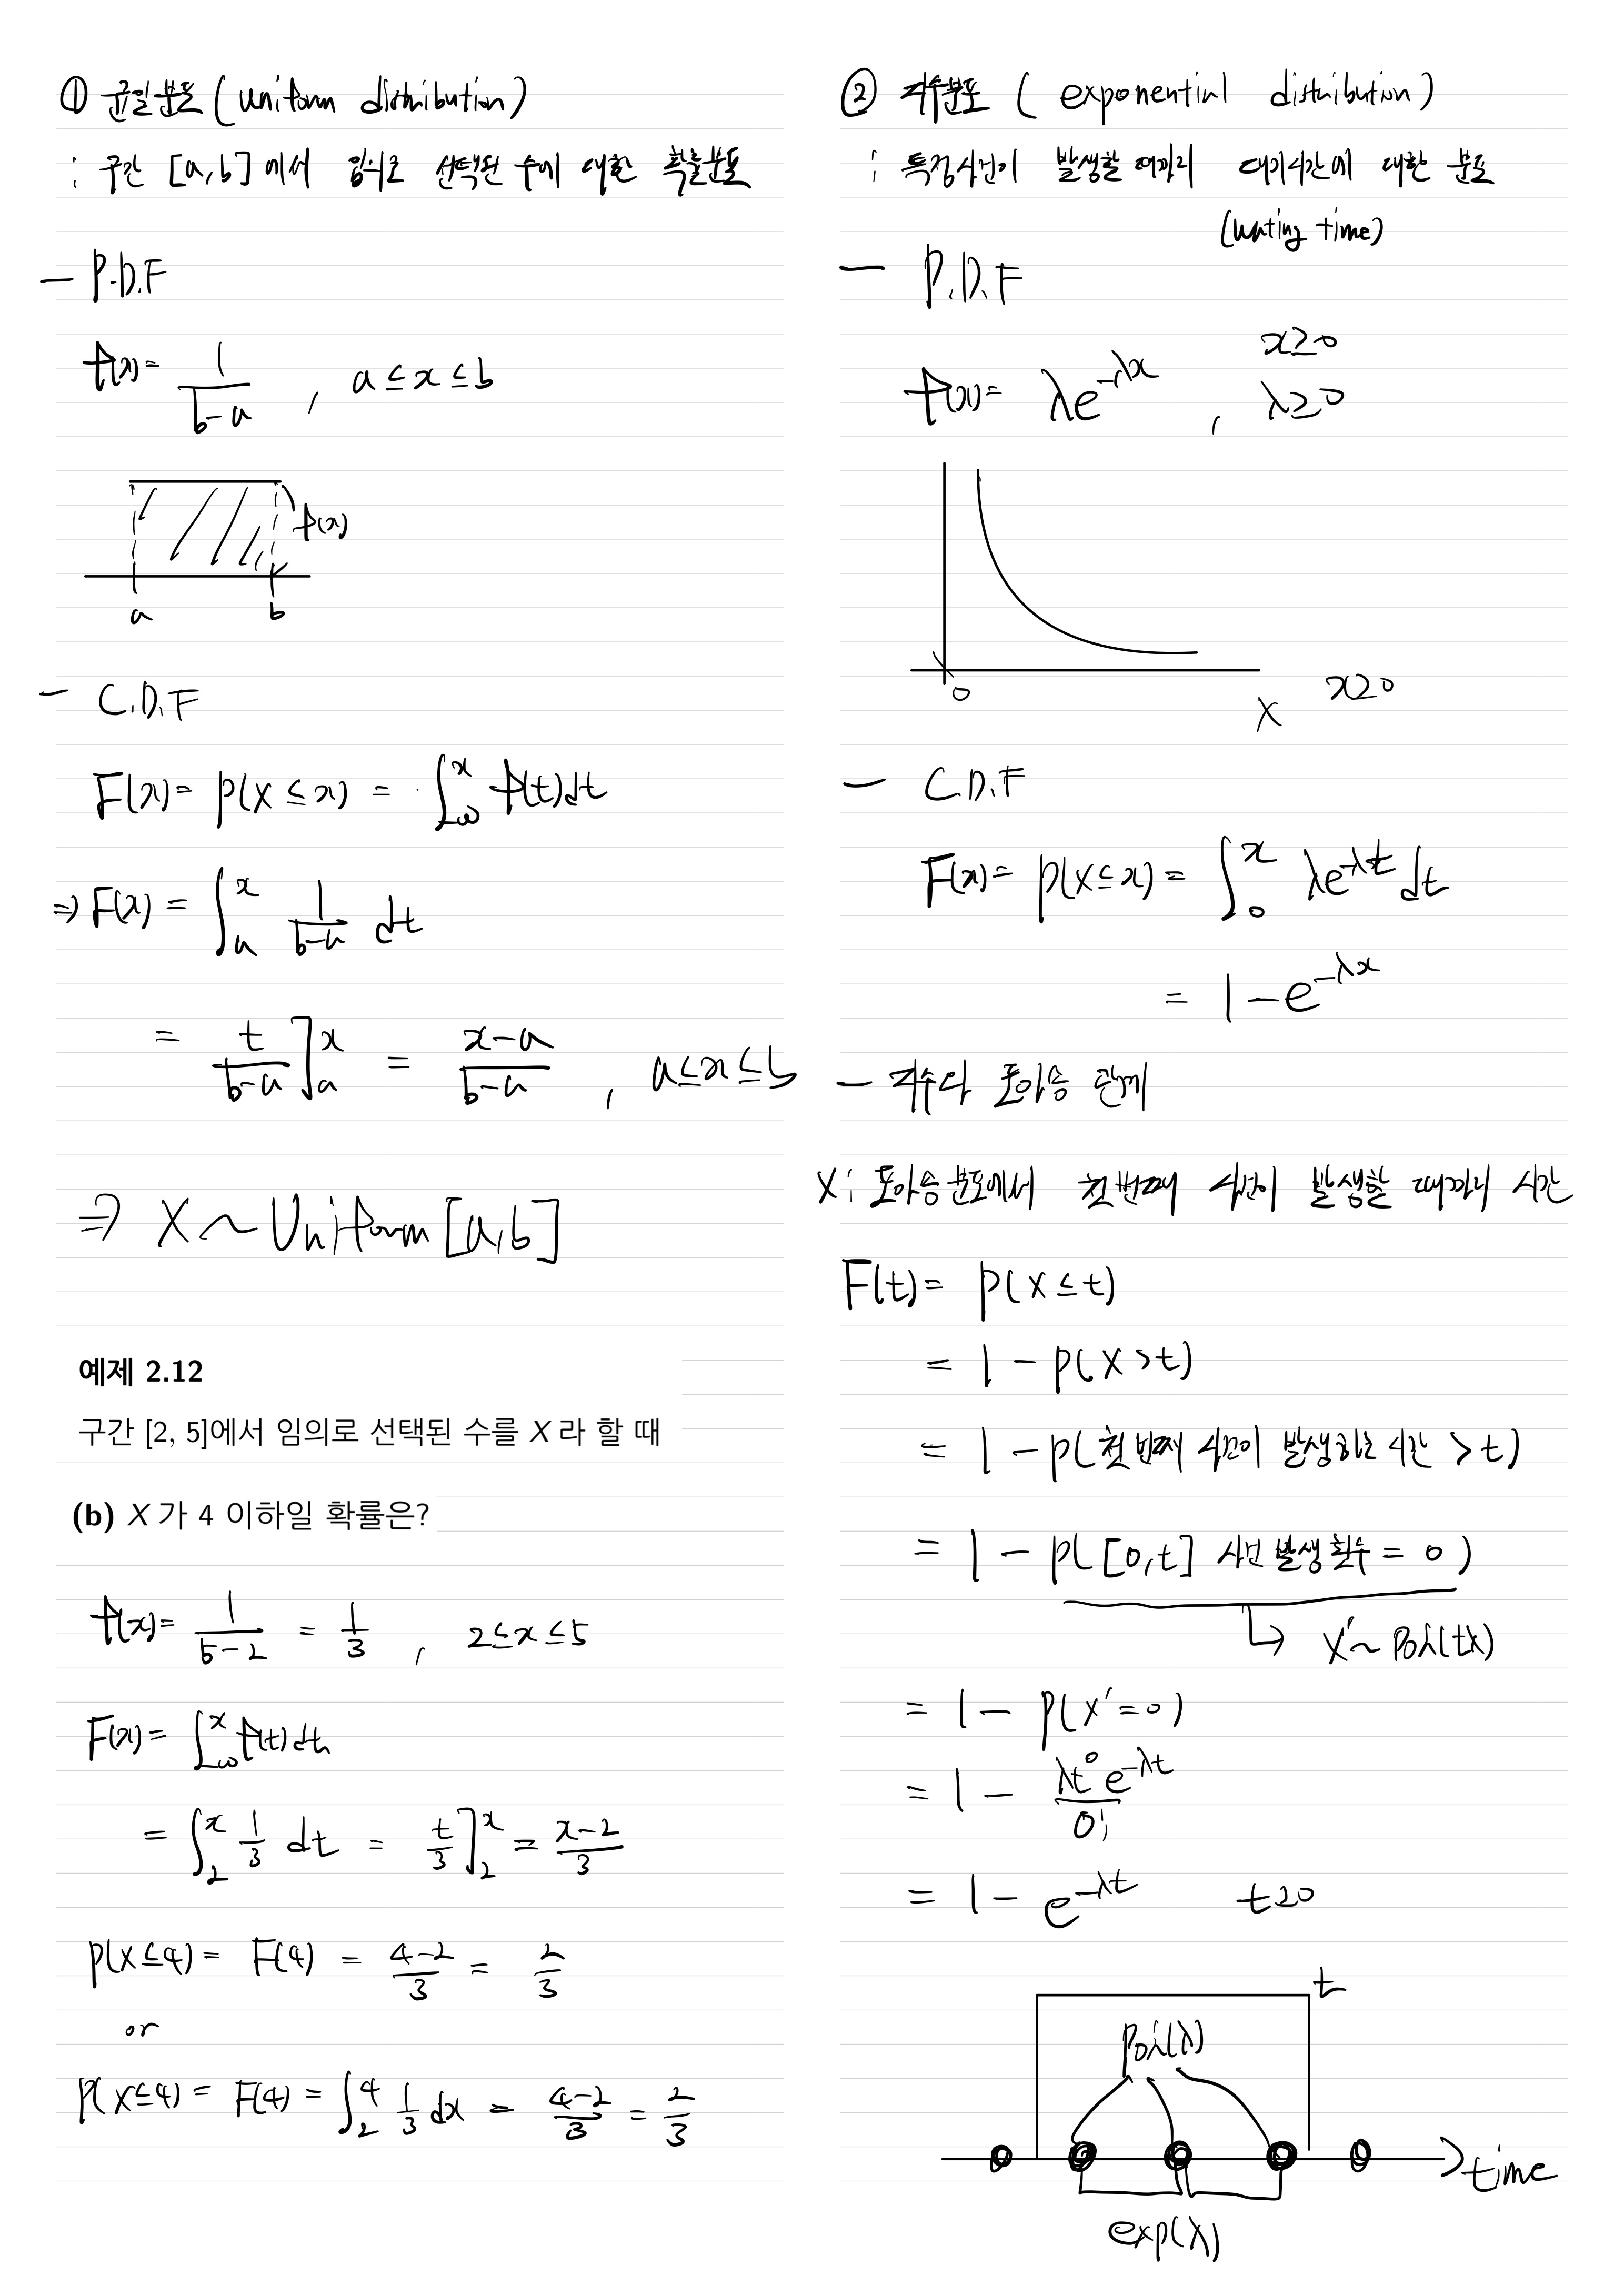 ① 균일분포 (uniform distribution)
: 구간 [a,b] 에서 임의로 선택된 수에 대한 확률분포
- P.D.F
f(x) = 1/(b-a) , a≤x≤b
f(x)
a b
- C.D.F
F(x) = P(X≤x) = ∫_{-∞}^{x} f(t)dt
⇒ F(x) = ∫_{a}^{x} 1/(b-a) dt
= t/(b-a) ]_{a}^{x} = (x-a)/(b-a) , a≤x≤b
⇒ X ~ Uniform [a,b]
예제 2.12
구간 [2, 5]에서 임의로 선택된 수를 X 라 할 때
(b) X 가 4 이하일 확률은?
f(x) = 1/(5-2) = 1/3 , 2≤x≤5
F(x) = ∫_{-∞}^{x} f(t)dt
= ∫_{2}^{x} 1/3 dt = t/3 ]_{2}^{x} = (x-2)/3
P(X≤4) = F(4) = (4-2)/3 = 2/3
or
P(X≤4) = F(4) = ∫_{2}^{4} 1/3 dx = (4-2)/3 = 2/3
② 지수분포 ( exponential distribution )
: 특정사건이 발생할 때까지 대기시간에 대한 분포
(waiting time)
- P.D.F
x≥0
f(x) = λe^{-λx} , λ≥0
0
X x≥0
- C.D.F
F(x) = P(X≤x) = ∫_{0}^{x} λe^{-λt} dt
= 1-e^{-λx}
- 지수와 포아송 관계
X : 포아송분포에서 첫번째 사건이 발생할 때까지 시간
F(t) = P(X≤t)
= 1 - P(X>t)
= 1 - P(첫번째 사건이 발생하는 시간 > t)
= 1 - P([0,t] 사건 발생횟수 = 0)
↳ X' ~ Poi(tλ)
= 1 - P(X'=0)
= 1 - λt^0 e^{-λt}/0!
= 1 - e^{-λt} t≥0
t
Poi(λ)
time
exp(λ)